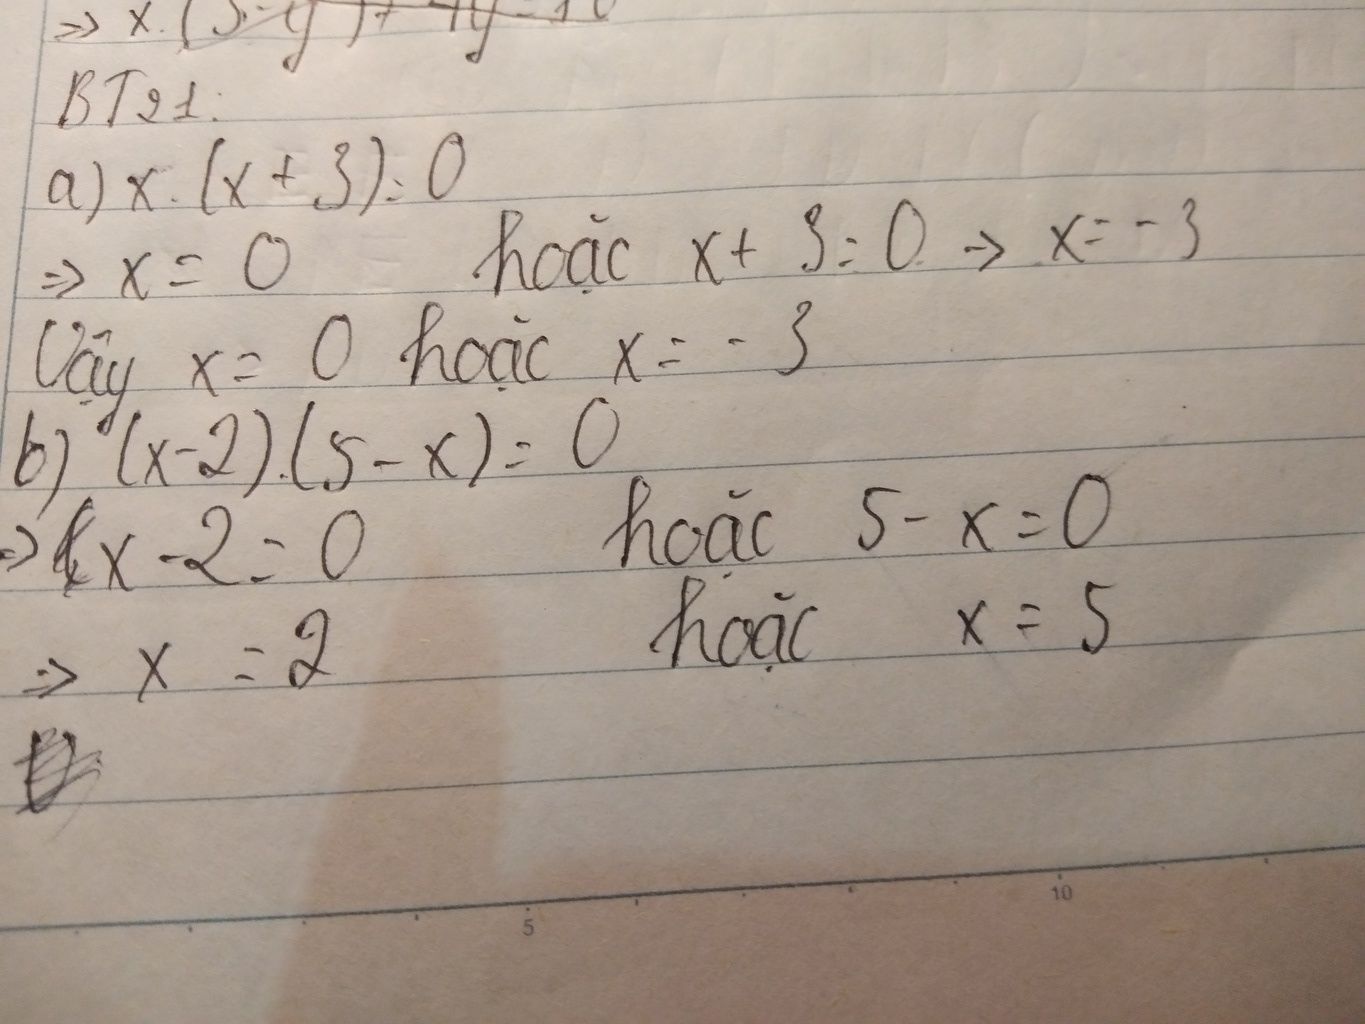 ⇒ x.(5-y)+4y=10
BT21:
a) x.(x+3)=0
⇒ x = 0 hoặc x+ 3=0 → x=-3
Vậy x= 0 hoặc x= -3
b) (x-2).(5-x)=0
⇒ x-2=0 hoặc 5-x=0
⇒ x =2 hoặc x = 5
5 10